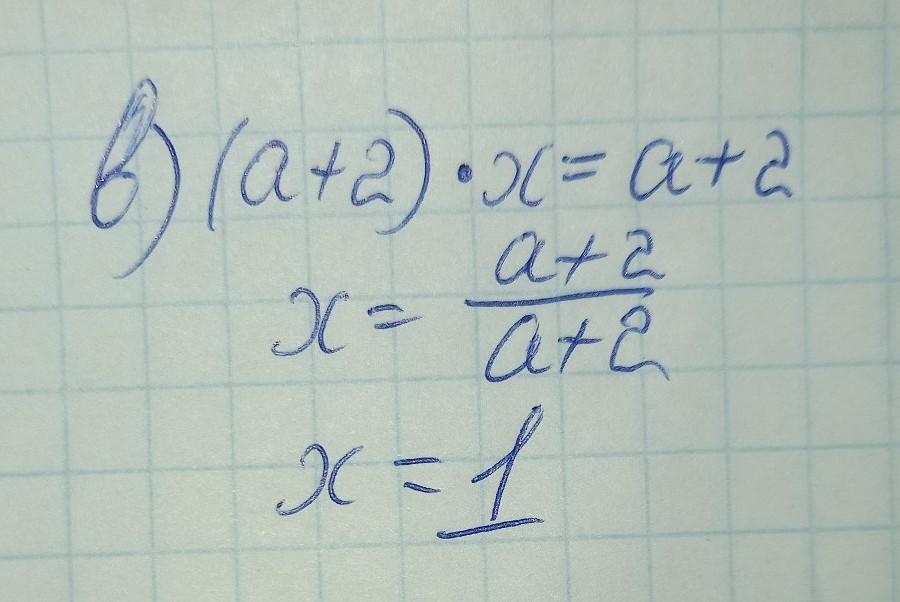 в) (a+2)·x = a+2
x = \frac{a+2}{a+2}
x = 1